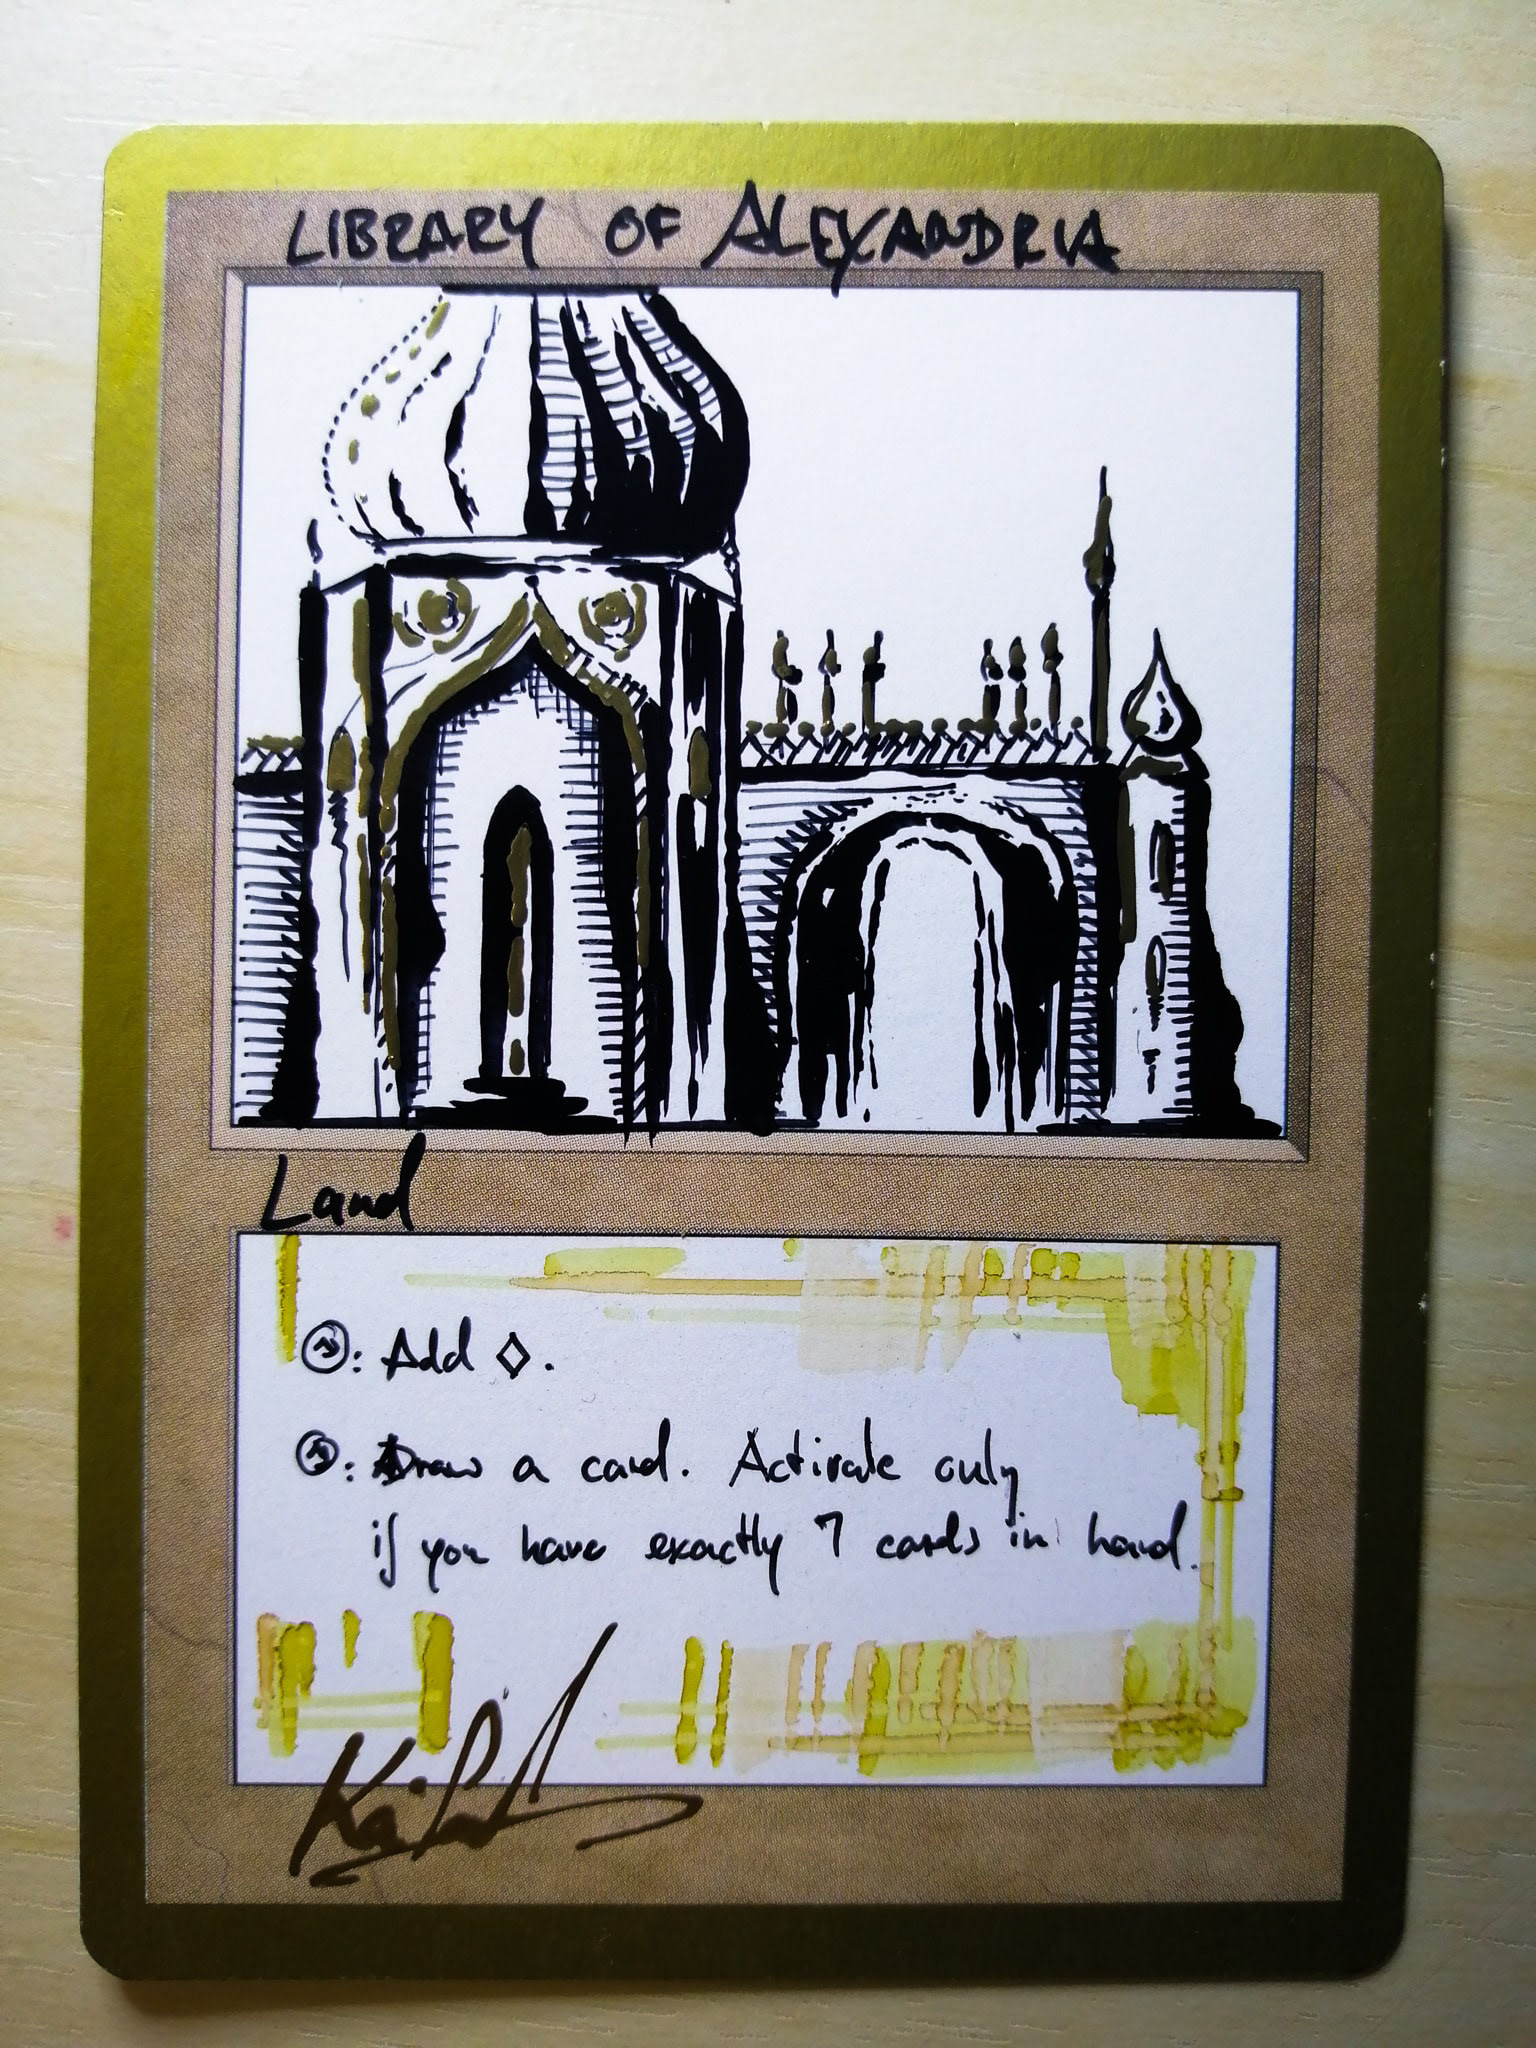 LIBRARY OF ALEXANDRIA
Land
: Add ◇.
: Draw a card. Activate only
if you have exactly 7 cards in hand.